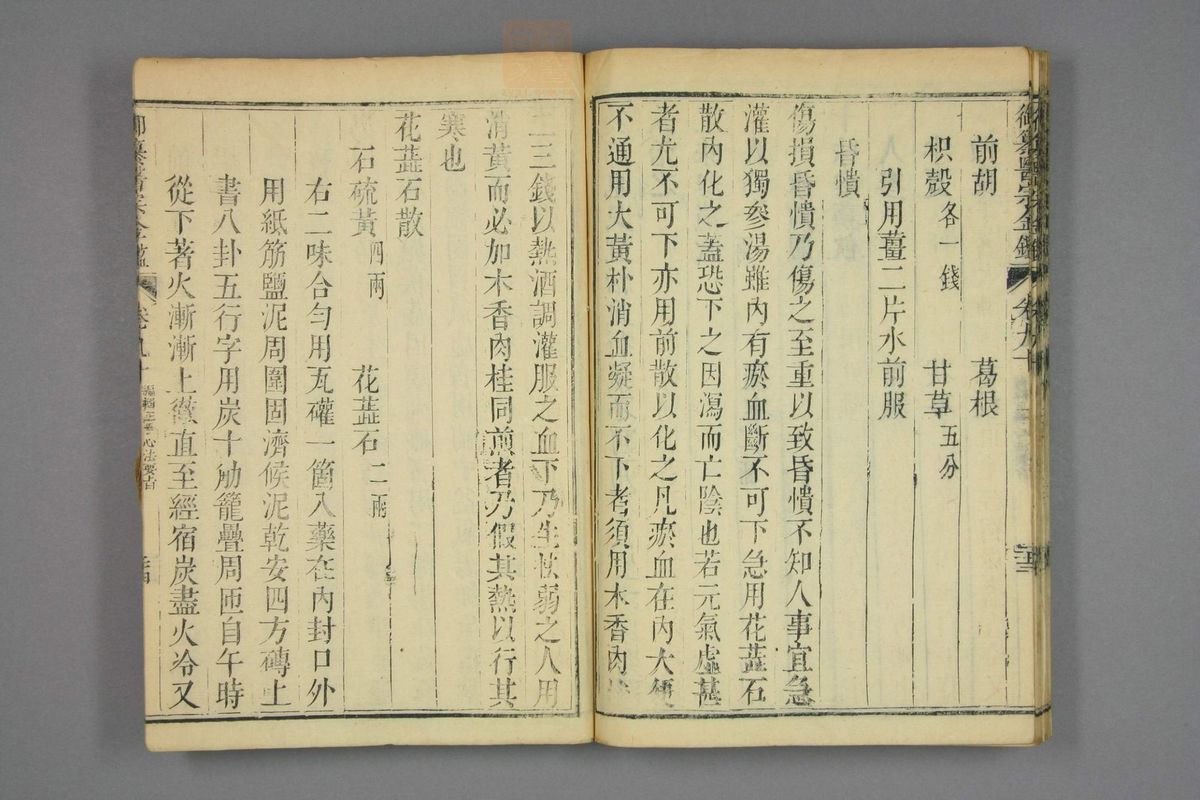 御纂醫宗金鑑 卷九十
前胡 葛根
枳殼各一錢 甘草五分
引用薑二片水前服
昏憒
傷損昏憒乃傷之至重以致昏憒不知人事宜急
灌以獨參湯雖內有瘀血斷不可下急用花蕋石
散內化之蓋恐下之因瀉而亡陰也若元氣虛甚
者尤不可下亦用前散以化之凡瘀血在內大便
不通用大黃朴消血凝而不下者須用木香肉
二三錢以熱酒調灌服之血下乃生怯弱之人用
消黃而必加木香肉桂同煎者乃假其熱以行其
寒也
花蕋石散
石硫黃四兩 花蕋石二兩
右二味合勻用瓦礶一箇入藥在內封口外
用紙筋鹽泥周圍固濟候泥乾安四方磚上
書八卦五行字用炭十觔籠疊周匝自午時
從下著火漸漸上徹直至經宿炭盡火冷又
御纂醫宗金鑑 卷九十 心法要旨